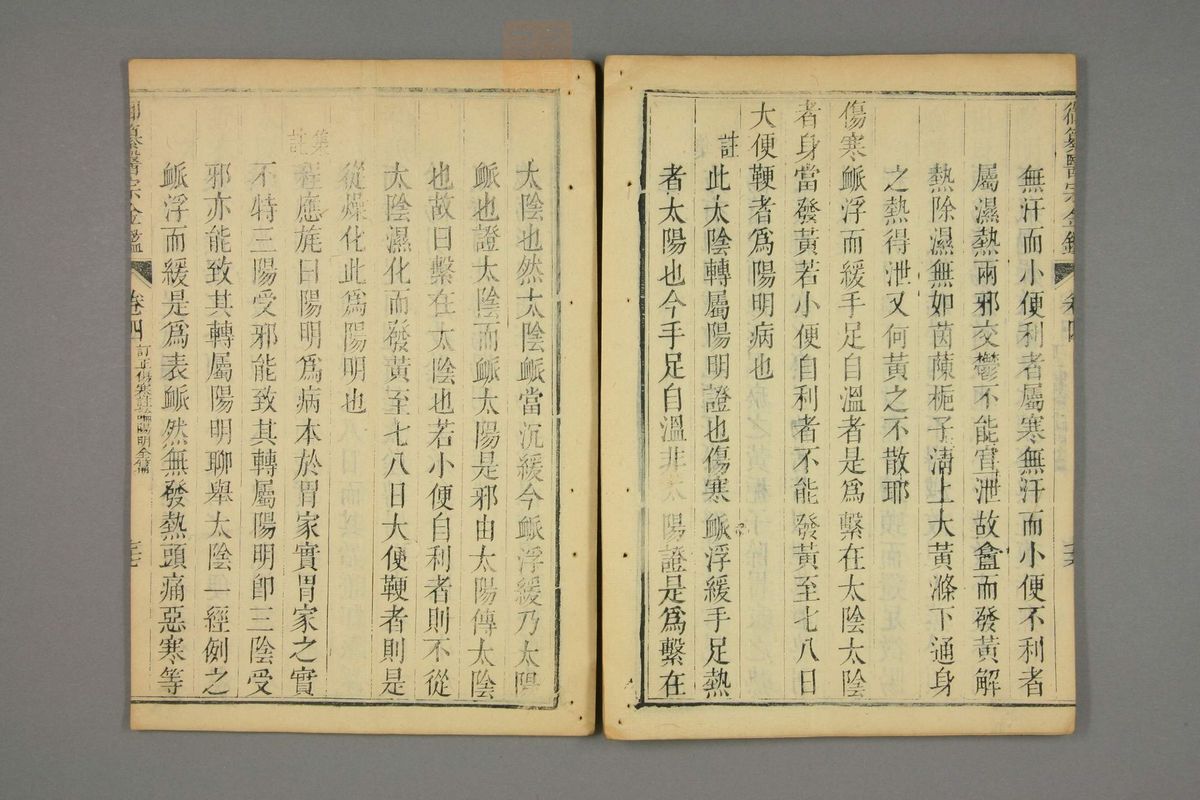 御纂醫宗金鑑 卷四
無汗而小便利者屬寒無汗而小便不利者
屬濕熱兩邪交鬱不能宣泄故盦而發黃解
熱除濕無如茵蔯梔子清上大黃滌下通身
之熱得泄又何黃之不散耶
傷寒脈浮而緩手足自溫者是爲繫在太陰太陰
者身當發黃若小便自利者不能發黃至七八日
大便鞕者爲陽明病也
註 此太陰轉屬陽明證也傷寒脈浮緩手足熱
者太陽也今手足自溫非太陽證是爲繫在
太陰也然太陰脈當沉緩今脈浮緩乃太陽
脈也證太陰而脈太陽是邪由太陽傳太陰
也故曰繫在太陰也若小便自利者則不從
太陰濕化而發黃至七八日大便鞕者則是
從燥化此爲陽明也
集註 程應旄曰陽明爲病本於胃家實胃家之實
不特三陽受邪能致其轉屬陽明卽三陰受
邪亦能致其轉屬陽明聊舉太陰一經例之
脈浮而緩是爲表脈然無發熱頭痛惡寒等
御纂醫宗金鑑 卷四 訂正傷寒註論陽明全篇